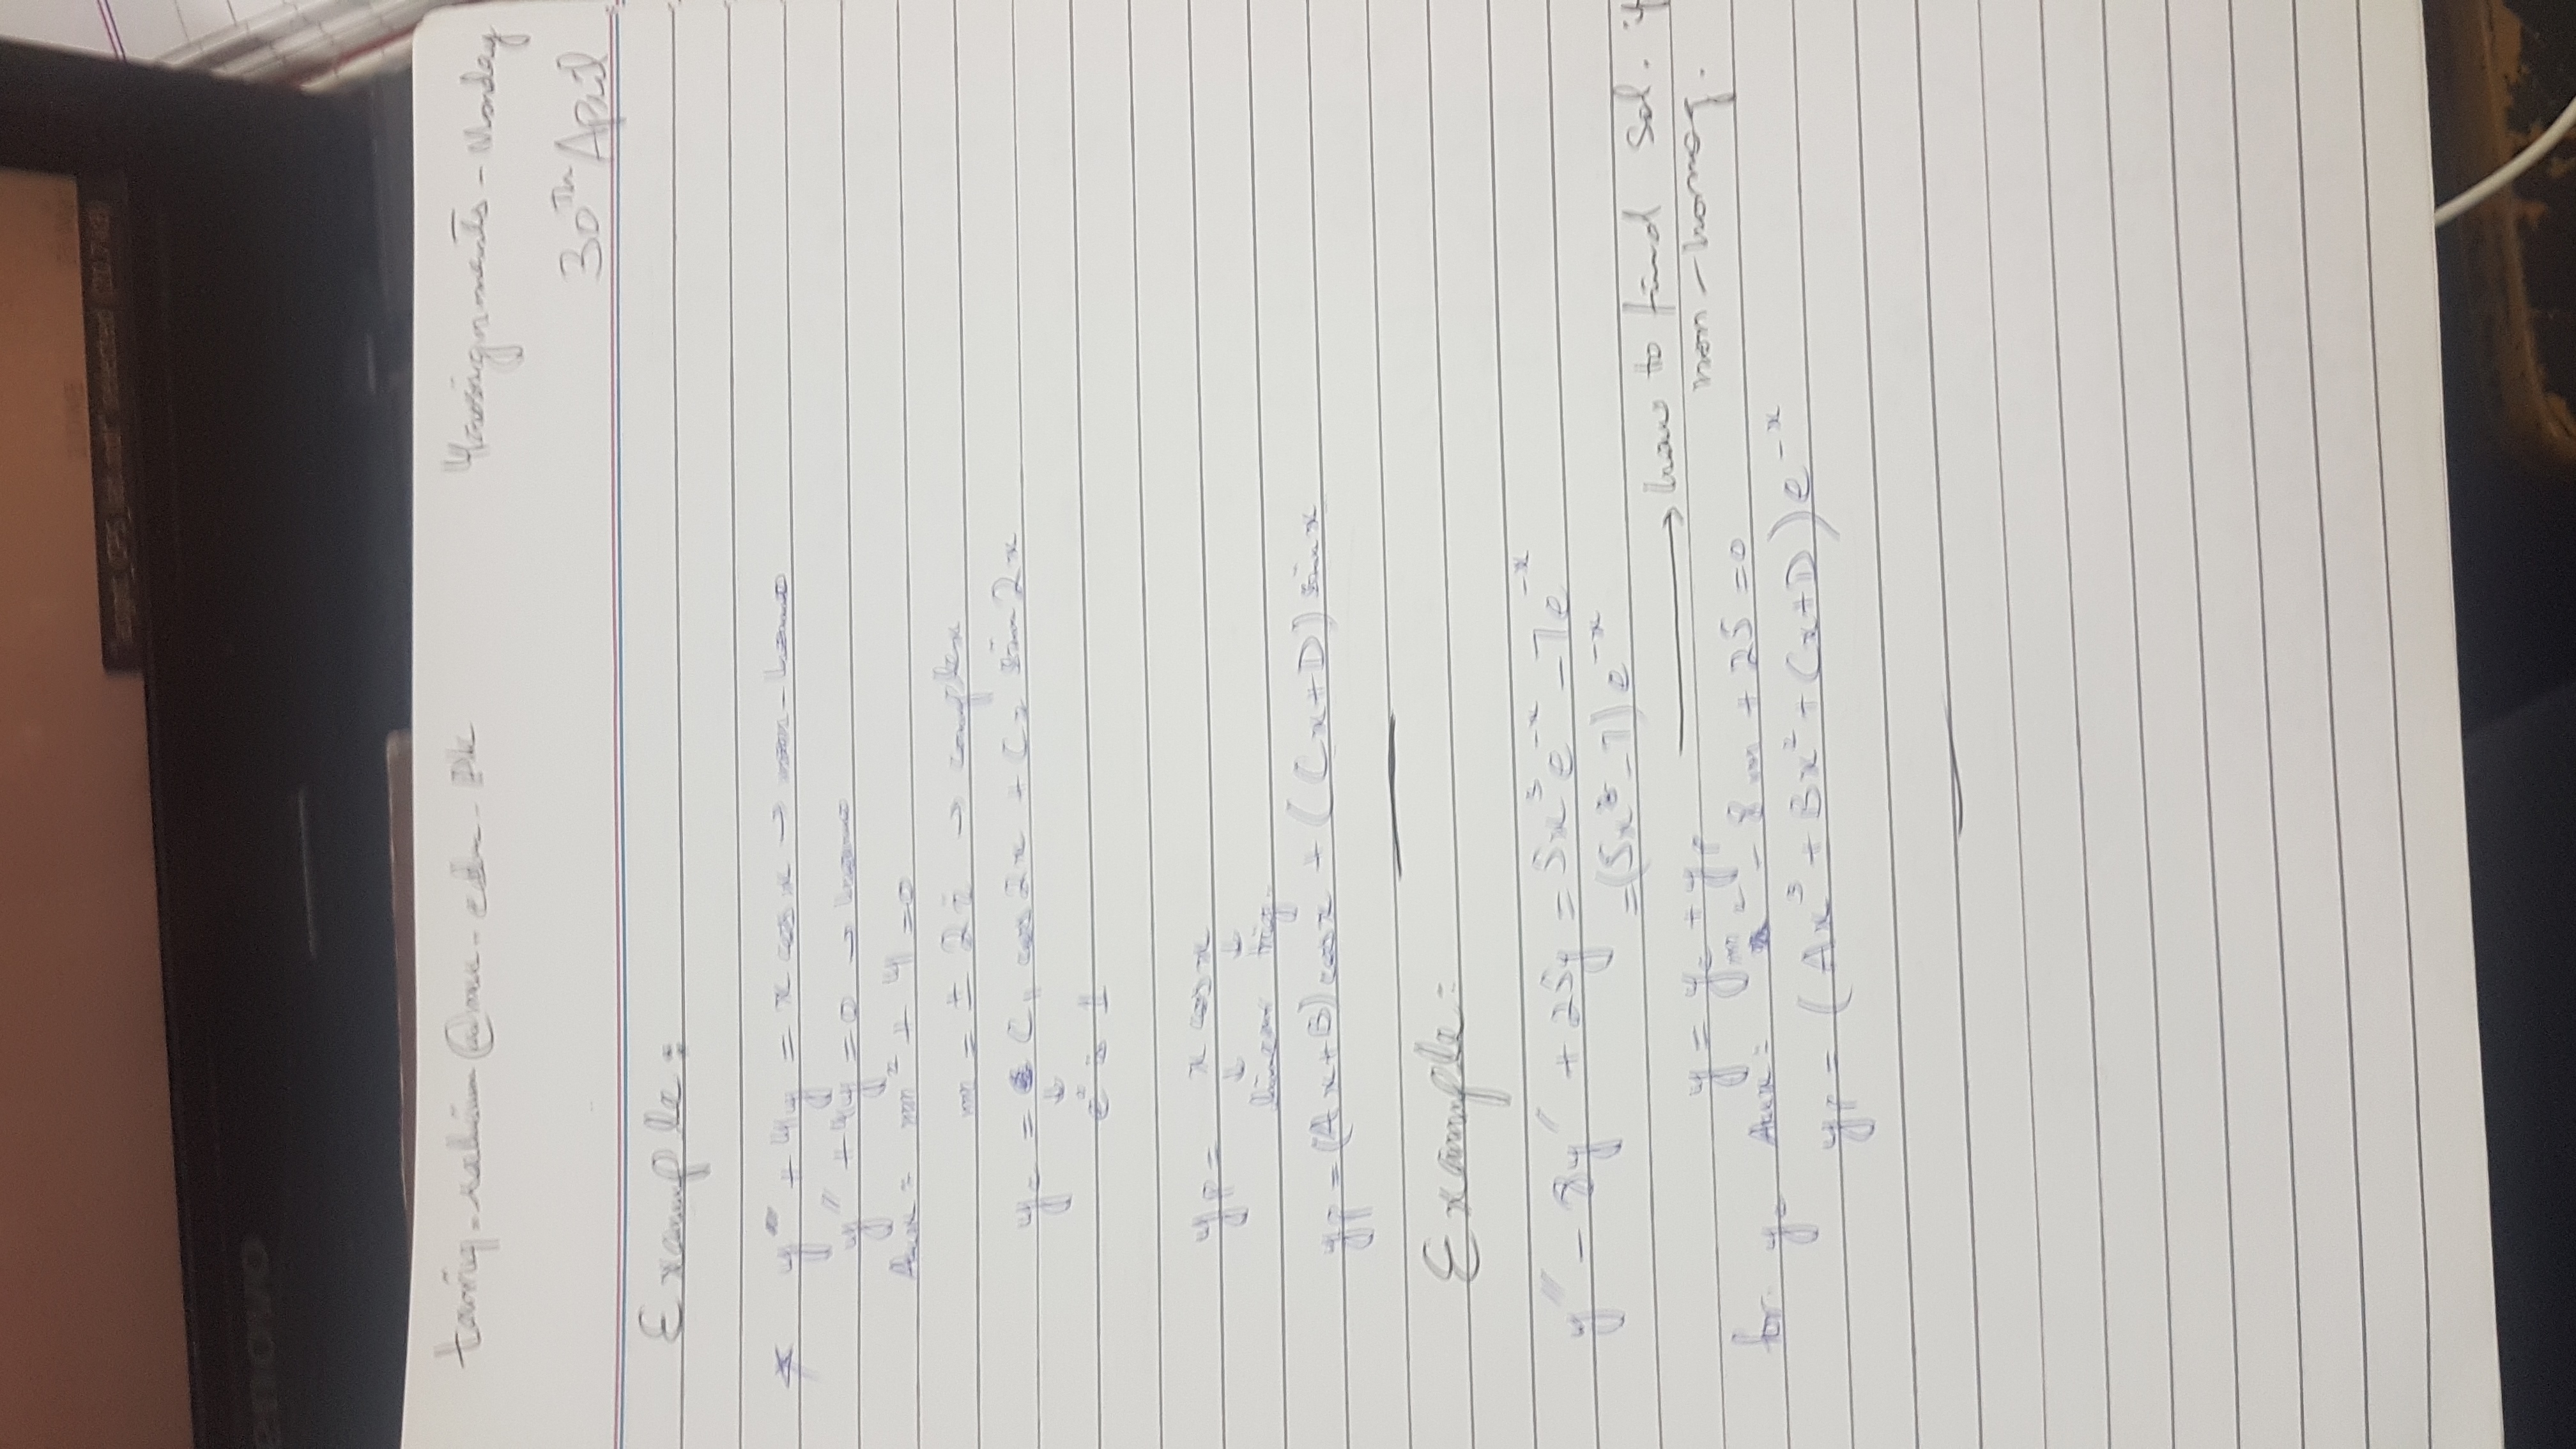 enovo
selected
4 assignments - Monday
30Th April
Example:
* y'' + 4y = x cos x → non-homo
y'' + 4y = 0 → homo
Aux = m² + 4 = 0
m = ± 2i → complex
yc = C₁ cos 2x + C₂ sin 2x
↓
is 1
yp = x cos x
↓ ↓
linear trig.
yp = (Ax+B) cos x + (Cx+D) sin x
Example:
y'' - 8y' + 25y = 5x³e⁻ˣ - 7e⁻ˣ
= (5x³ - 7) e⁻ˣ
y = yc + yp → how to find sol. if
non-homog.
for yc Aux: m² - 8m + 25 = 0
yp = (Ax³ + Bx² + Cx + D) e⁻ˣ